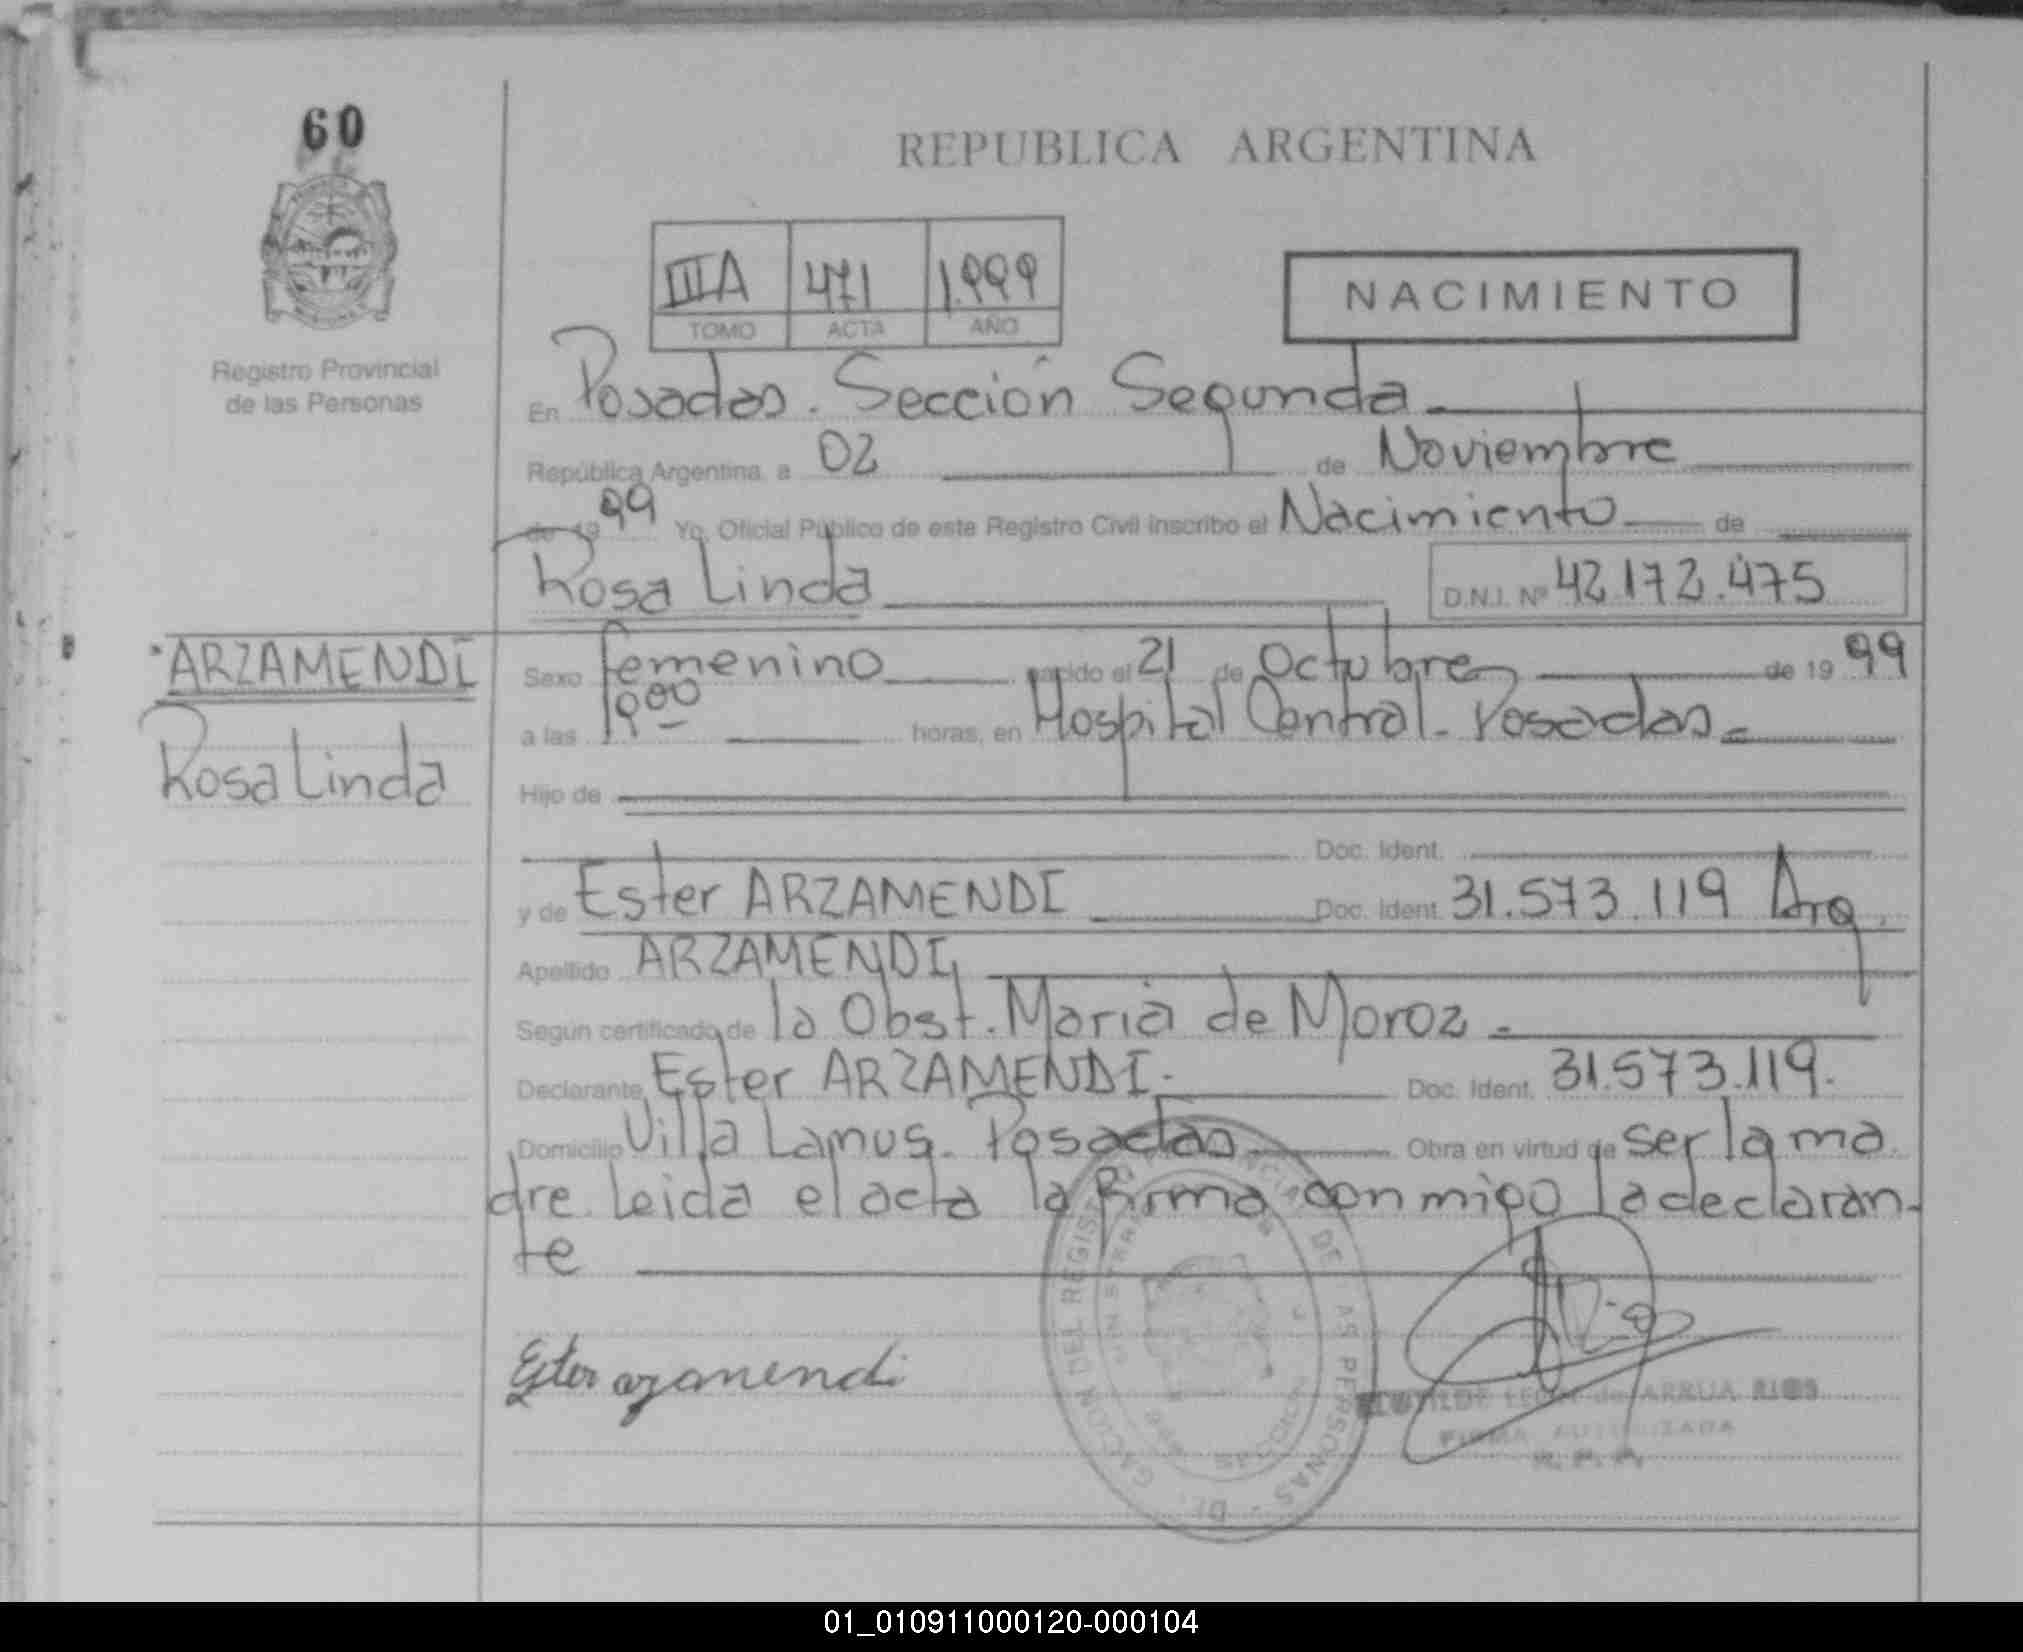 60
REPUBLICA ARGENTINA
IIIA 471 1.999
TOMO ACTA AÑO
NACIMIENTO
Registro Provincial
de las Personas
En Posadas. Sección Segunda
República Argentina, a 02 de Noviembre
de 19 99 Yo, Oficial Público de este Registro Civil inscribo el Nacimiento de
Rosa Linda D.N.I. Nº 42.172.475
ARZAMENDI
Rosa Linda
Sexo femenino nacido el 21 de Octubre de 19 99
a las horas, en Hospital Central. Posadas
Hijo de
Doc. Ident.
y de Ester ARZAMENDI Doc. Ident. 31.573.119 Arg.
Apellido ARZAMENDI
Según certificado de la Obst. Maria de Moroz
Declarante Ester ARZAMENDI. Doc. Ident. 31.573.119.
Domicilio Villa Lanus. Posadas Obra en virtud de ser la ma
dre. Leida el acta la firma conmigo la declaran-
te
Ester azamendi
DE ARRUA RIOS
FIRMA AUTORIZADA
R. P. P.
01_010911000120-000104